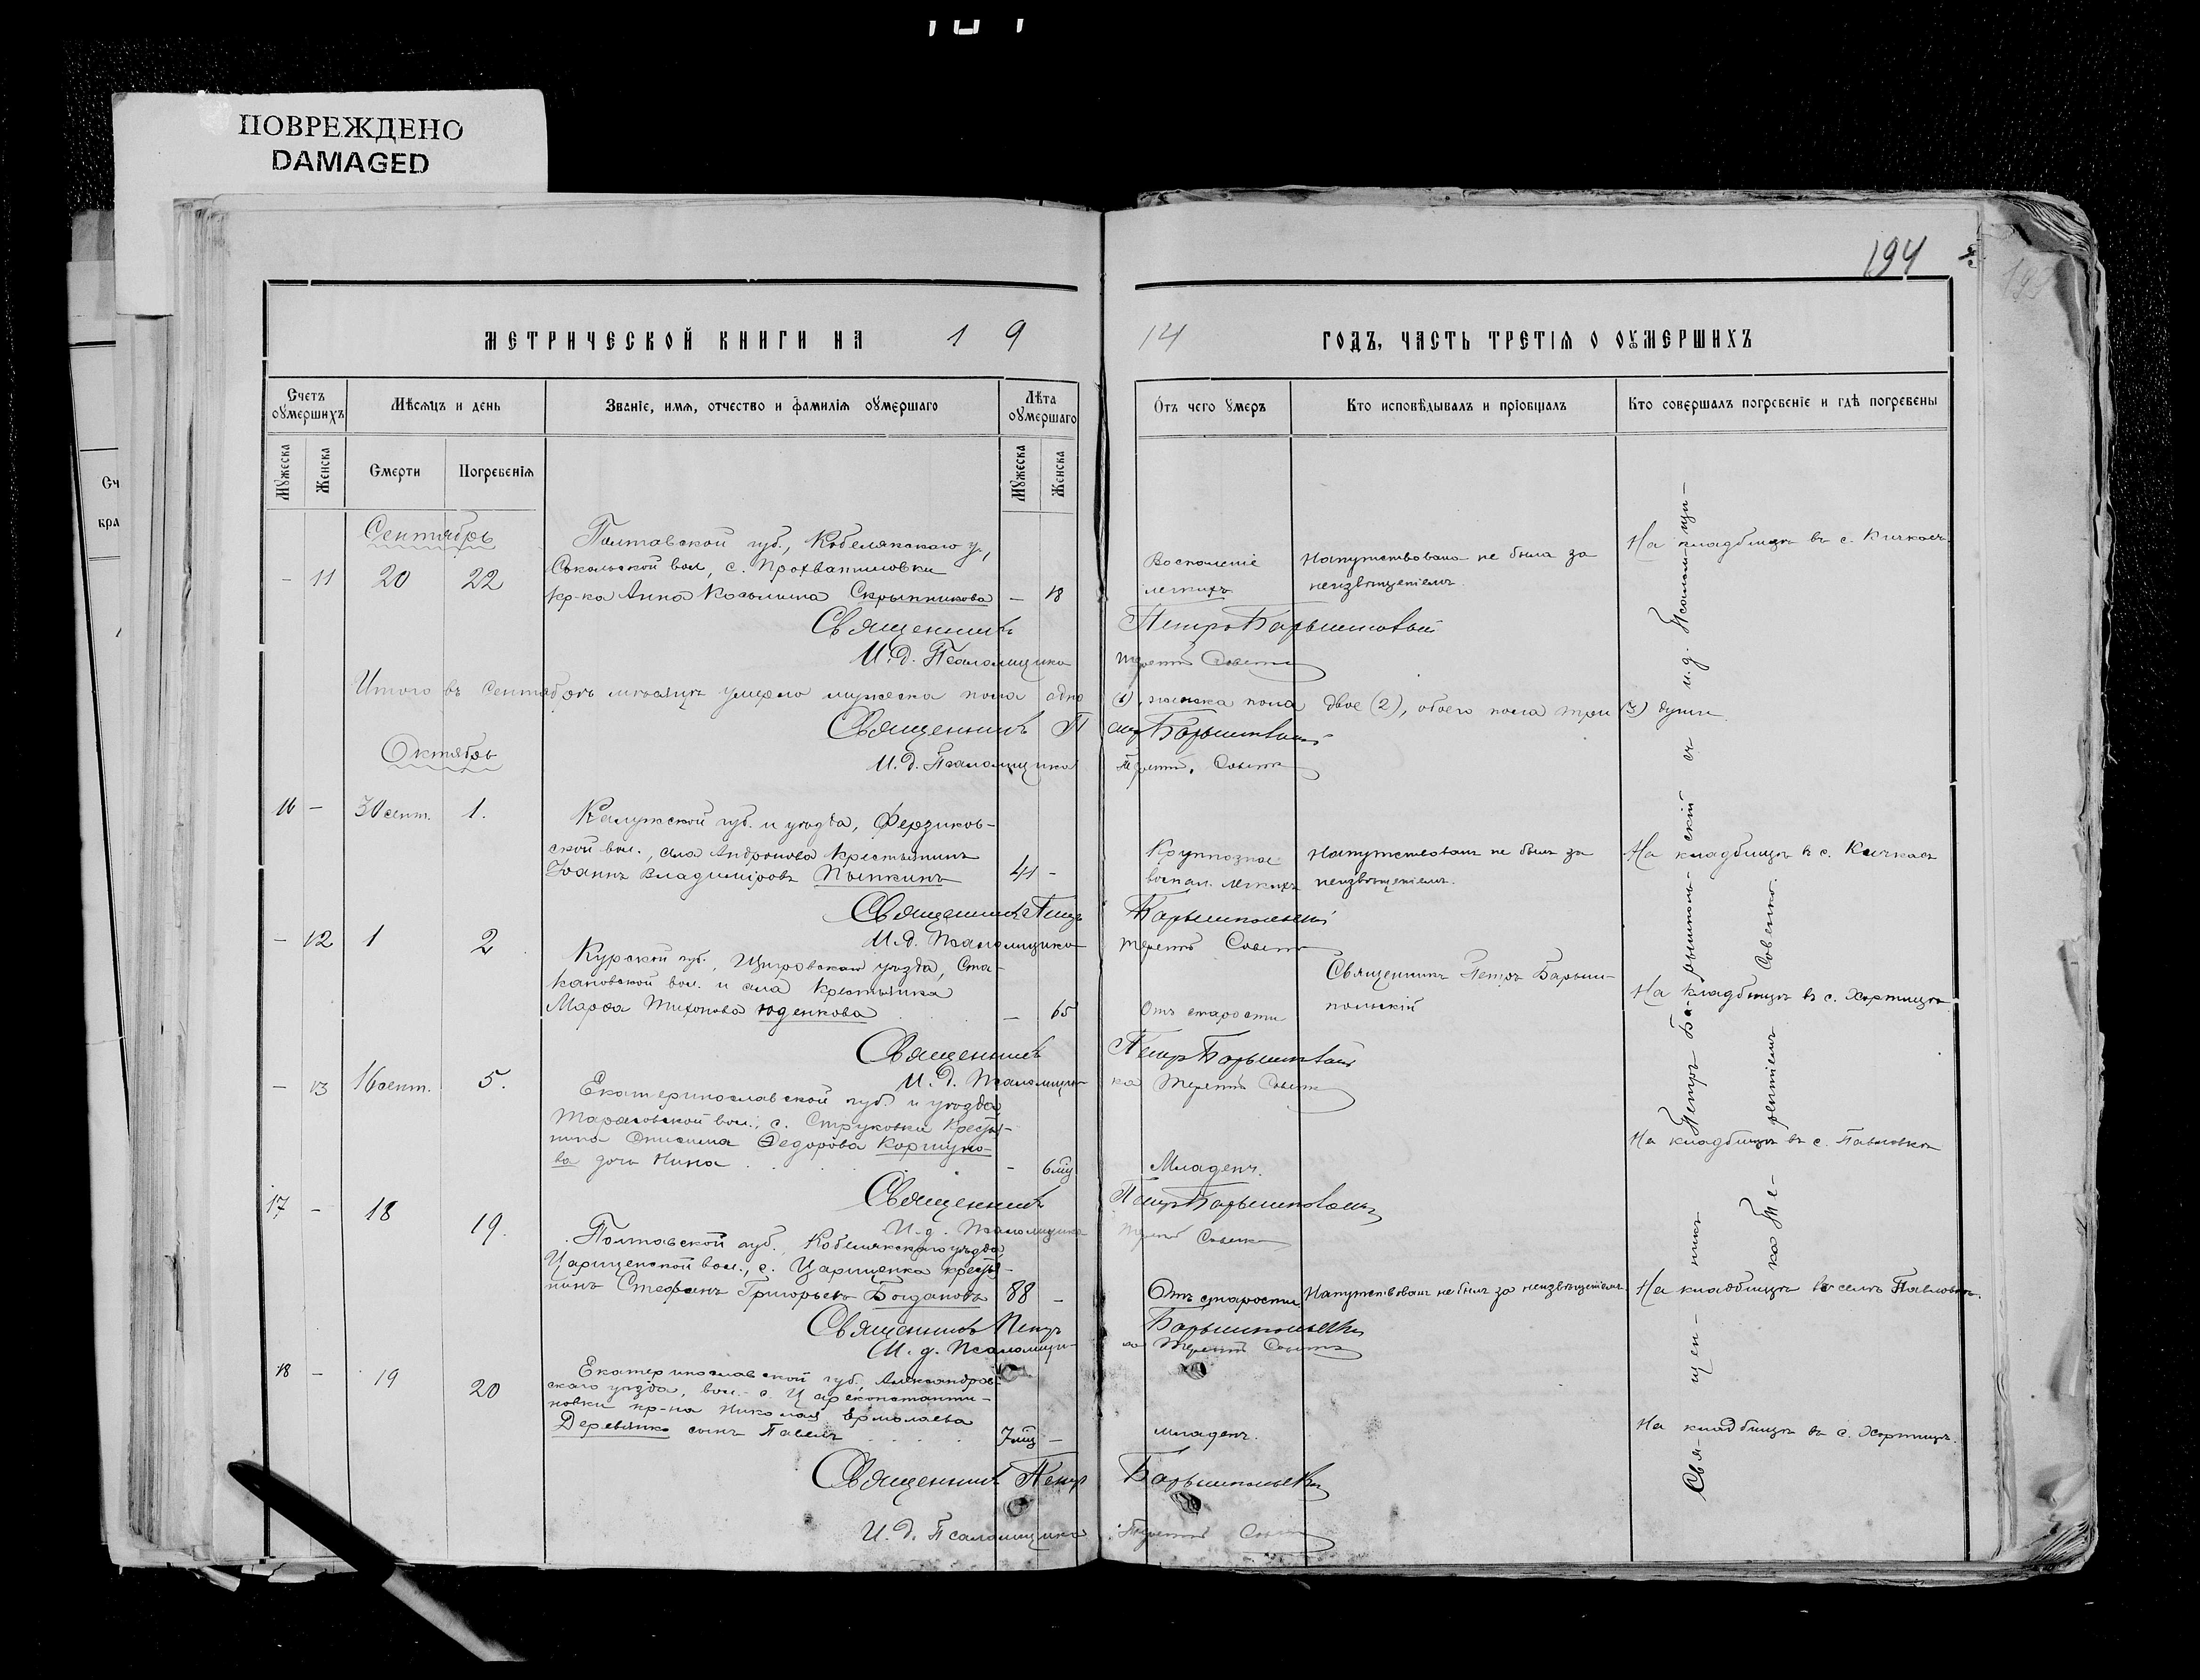 ПОВРЕЖДЕНО
DAMAGED
194
МЕТРИЧЕСКОЙ КНИГИ НА 19
14 ГОДЪ, ЧАСТЬ ТРЕТІЯ О ОУМЕРШИХЪ
Счетъ оумершихъ
Мѣсяцъ и день
Званіе, имя, отчество и фамилія оумершаго
Лѣта оумершаго
Отъ чего умеръ
Кто исповѣдывалъ и пріобщалъ
Кто совершалъ погребеніе и гдѣ погребены
Мужеска
Женска
Смерти
Погребенія
Мужеска
Женска
Сентябрь
Полтавской губ., Кобелякскаго у.,
На кладбищѣ въ с. Кичкасъ.
- 11 20 22
Сокольской вол., с. Прохватиловки
кр-ка Анна Косьмина Скрынникова - 18
Воспаленіе
легкихъ
Напутствована не была за
неизвѣщеніемъ.
Священникъ Петръ Барышпольскій
И. д. Псаломщика Терентій Совенко
Итого въ Сентябрѣ мѣсяцѣ умерло мужеска пола одно (1), женска пола двое (2), обоего пола три (3) души.
Священникъ Петръ Барышпольскій
Октябрь
И. д. Псаломщика Терентій Совенко
16 - 30 сент. 1.
Калужской губ. и уѣзда, Ферзиков-
ской вол., села Андронова крестьянинъ
Іоаннъ Владиміровъ Пышкинъ 41 -
Крупозное
воспал. легкихъ
Напутствованъ не былъ за
неизвѣщеніемъ.
На кладбищѣ въ с. Кичкасъ
Священникъ Петръ Барышпольскій
И. д. Псаломщика Терентій Совенко
- 12 1 2
Курской губ., Щигровскаго уѣзда, Ста-
кановской вол. и села крестьянка
Марѳа Тихонова Юденкова - 65
Отъ старости
Священникъ Петръ Барыш-
польскій
На кладбищѣ въ с. Хортицѣ.
Священникъ Петръ Барышпольскій
И. д. Псаломщика Терентій Совенко
- 13 16 сент. 5.
Екатеринославской губ. и уѣзда
Тарасовской вол., с. Струковки кресть-
нина Онисима Ѳедорова Коршуно-
ва дочь Нина - 6 мц
Младенч.
На кладбищѣ въ с. Павловкѣ
Священникъ Петръ Барышпольскій
И. д. Псаломщика Терентій Совенко
17 - 18 19.
Полтавской губ. Кобелякскаго уѣзда
Царищенской вол., с. Царищенка кресть-
нинъ Стефанъ Григорьевъ Богдановъ 88 -
Отъ старости
Напутствованъ не былъ за неизвѣщеніемъ.
На кладбищѣ въ селѣ Павловкѣ.
Священникъ Петръ Барышпольскій
И. д. Псаломщика Терентій Совенко
18 - 19 20
Екатеринославской губ., Александров-
скаго уѣзда, вол. - с. Цареконстанти-
новки кр-на Николая Ермолаева
Деревянко сынъ Павелъ 7 мц -
младенч.
На кладбищѣ въ с. Хортицѣ.
Священникъ Петръ Барышпольскій
И. д. Псаломщика Терентій Совенко
Свя-щен-никъ Петръ Ба-рышполь-скій съ и. д. Псалом-щи-
ка Те-рентіемъ Совенко.